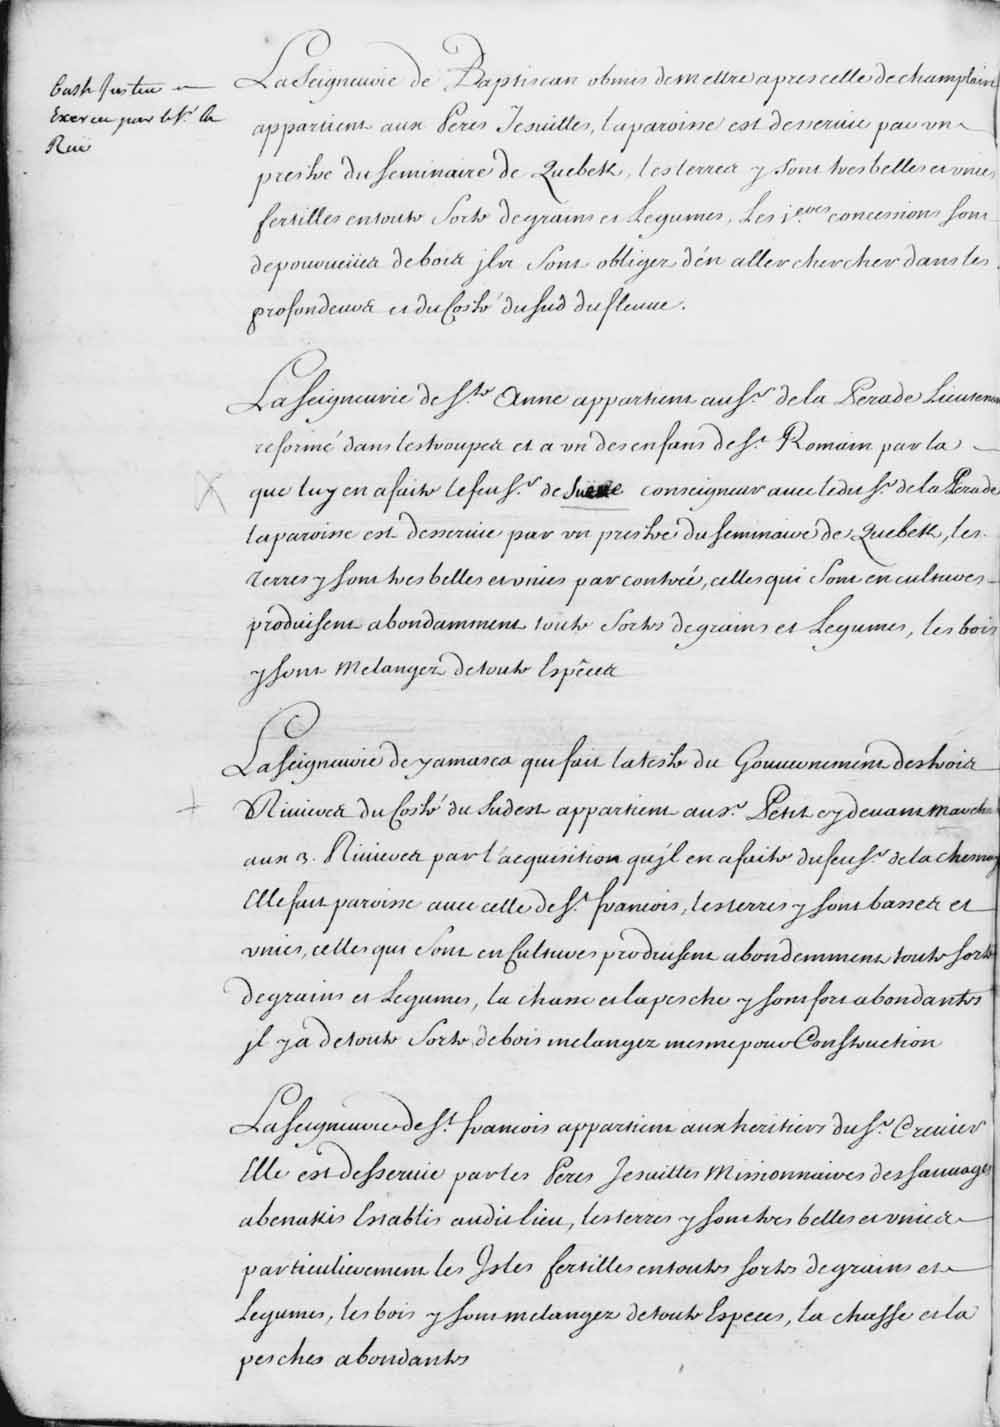 baste Justice
Exercée par le Sr. la
Rüe
La Seigneurie de Baptiscan obmis de mettre apres celle de champlain
appartient aux Peres Jesuittes, la paroisse est desservie par un
prestre du seminaire de Quebek, les terres y sont tres belles et unies
fertilles en toute Sorte de grains et Legumes, Les 1eres concessions sont
depourveües de bois jls Sont obligez d'én aller chercher dans les
profondeurs et du Costé du sud du fleuve.
La Seigneurie de Ste. Anne appartient au Sr. de la Perade Lieutenan
reformé dans les troupes et a un des enfans de St. Romain par la
que luy en a faite le feu Sr. de Suëve conseigneur avec le du Sr. de la Perade
la paroisse est desservie par un prestre du seminaire de Quebek, les
terres y sont tres belles et unies par contrée, celles qui Sont en cultures
produisent abondamment toute Sortes de grains et Legumes, les bois
y sont Melangez de toute Espêces
La Seigneurie de yamasca qui fait la teste du Gouvernement des trois
Rivieres du Costé du Sudest appartient au Sr. Petit cy devant march
aux 3. Rivieres par l'acquisition qu'jl en a faite du feu Sr. de la chesnay
Elle fait paroisse avec celle de St. francois, les terres y sont basses et
unies, celles qui Sont en Cultures produisent abondemment toute sorte
de grains et Legumes, la chasse et la pesche y sont fort abondantes
jl y a de toute Sorte de bois melangez mesme pour Construction
La Seigneurie de St. francois appartient aux heritiers du Sr. Crevier
Elle est desservie par les Peres Jesuittes Missionnaires des sauvages
abenakis Establis audit lieu, les terres y sont tres belles et unies
particulierement les Isles fertilles en toutes sortes de grains et
Legumes, les bois y sont melangez de toute Especes, la chasse et la
pesches abondantes